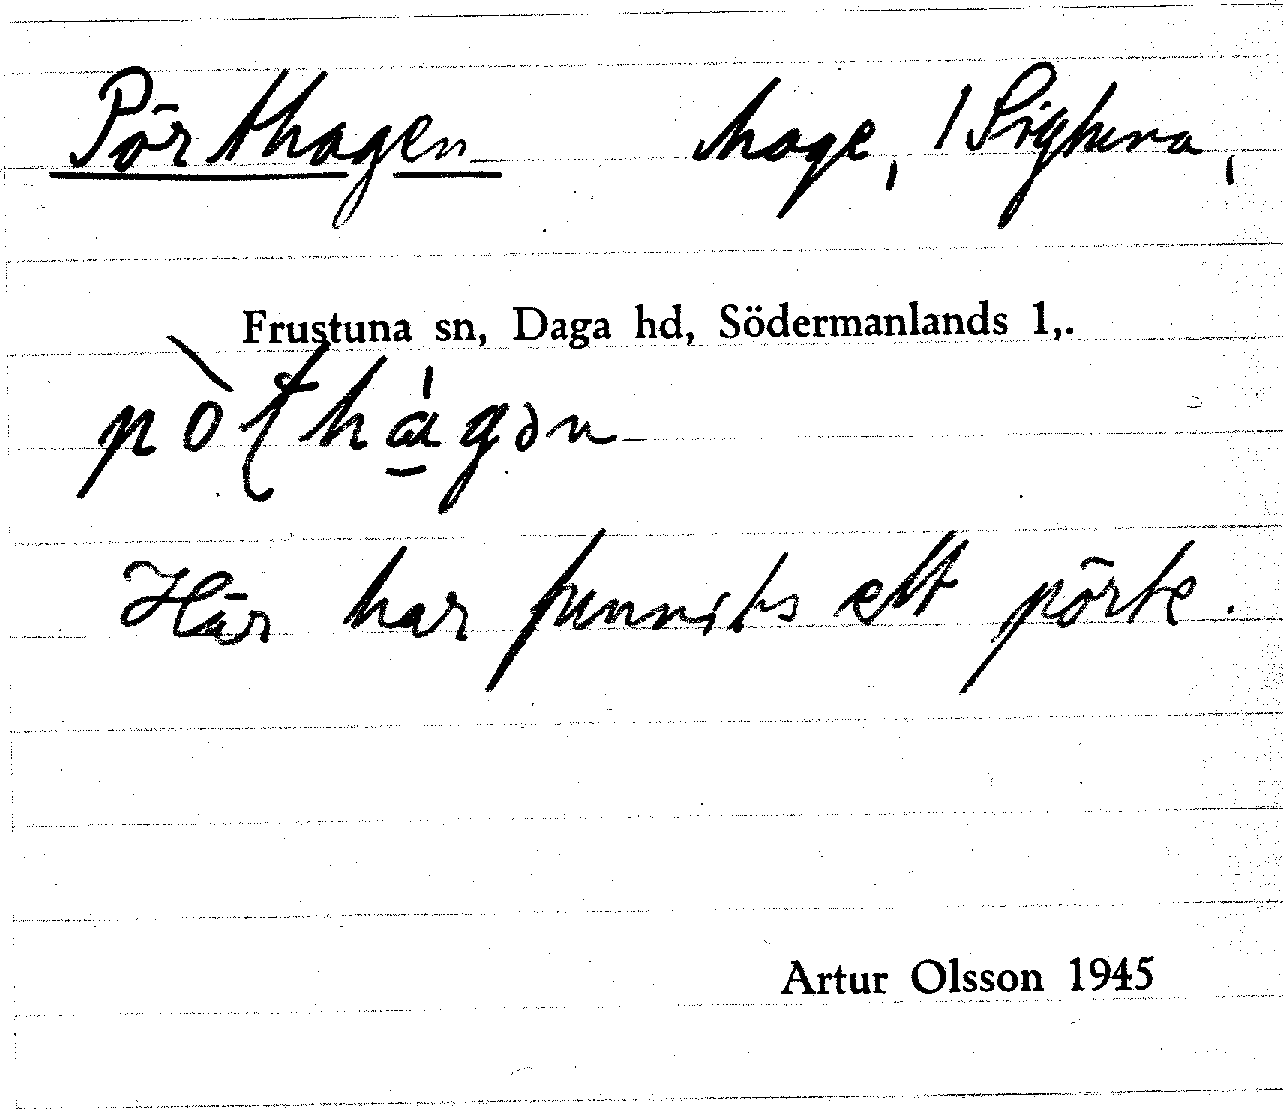 Pörthagen hage, 1 Sigtuna,
Frustuna sn, Daga hd, Södermanlands l,.
Här har funnits ett pörte.
Artur Olsson 1945